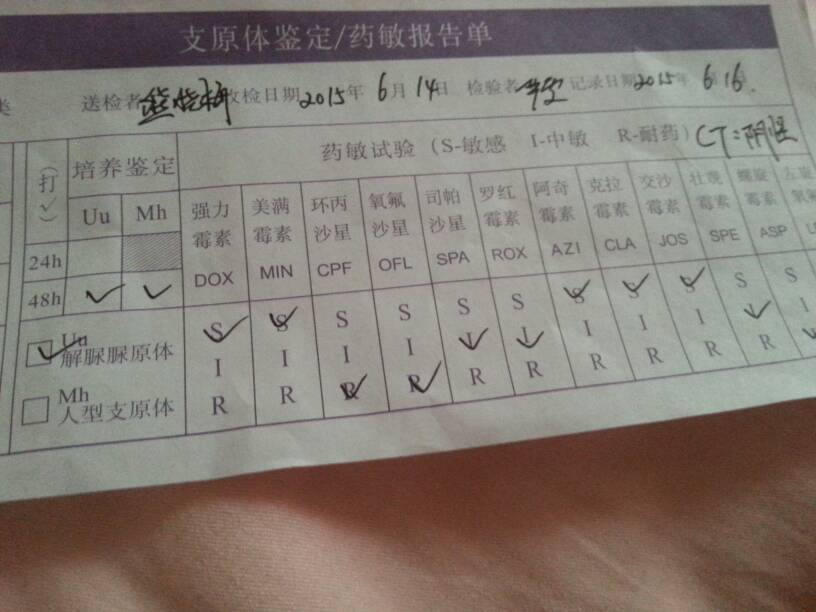 支原体鉴定/药敏报告单
类 送检者 收检日期 2015年 6月 14日 检验者 记录日期 2015年 6月16日
(打✓) 培养鉴定 药敏试验 (S-敏感 I-中敏 R-耐药) CT:阴性
Uu Mh 强力霉素 DOX 美满霉素 MIN 环丙沙星 CPF 氧氟沙星 OFL 司帕沙星 SPA 罗红霉素 ROX 阿奇霉素 AZI 克拉霉素 CLA 交沙霉素 JOS 壮观霉素 SPE 螺旋霉素 ASP 左旋氧氟
24h
48h ✓ ✓
✓ Uu 解脲脲原体 S S S S S S S S S S S
I I I I I I I I I I I
Mh 人型支原体 R R R R R R R R R R R